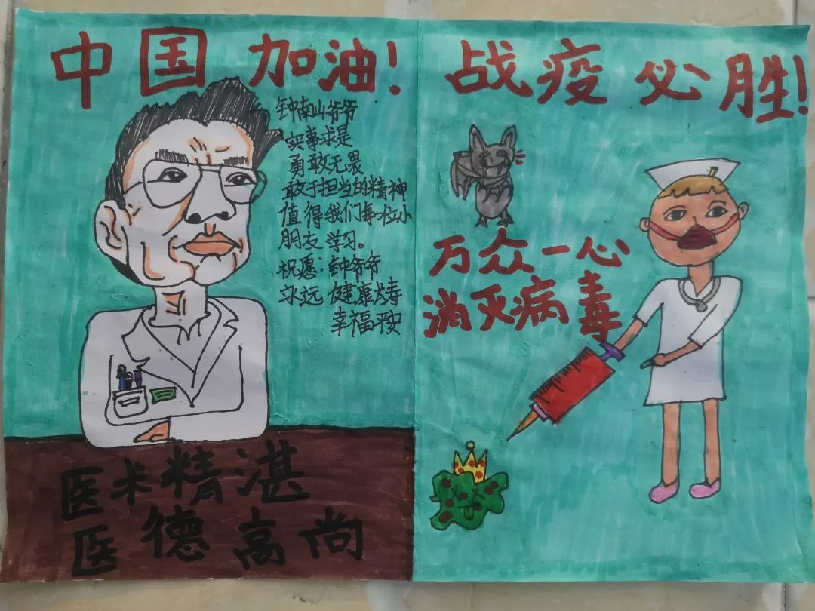 中国加油！
钟南山爷爷
实事求是
勇敢无畏
敢于担当的精神
值得我们每位小
朋友学习。
祝愿：钟爷爷
永远健康长寿
幸福平安
医术精湛
医德高尚
战疫必胜！
万众一心
消灭病毒